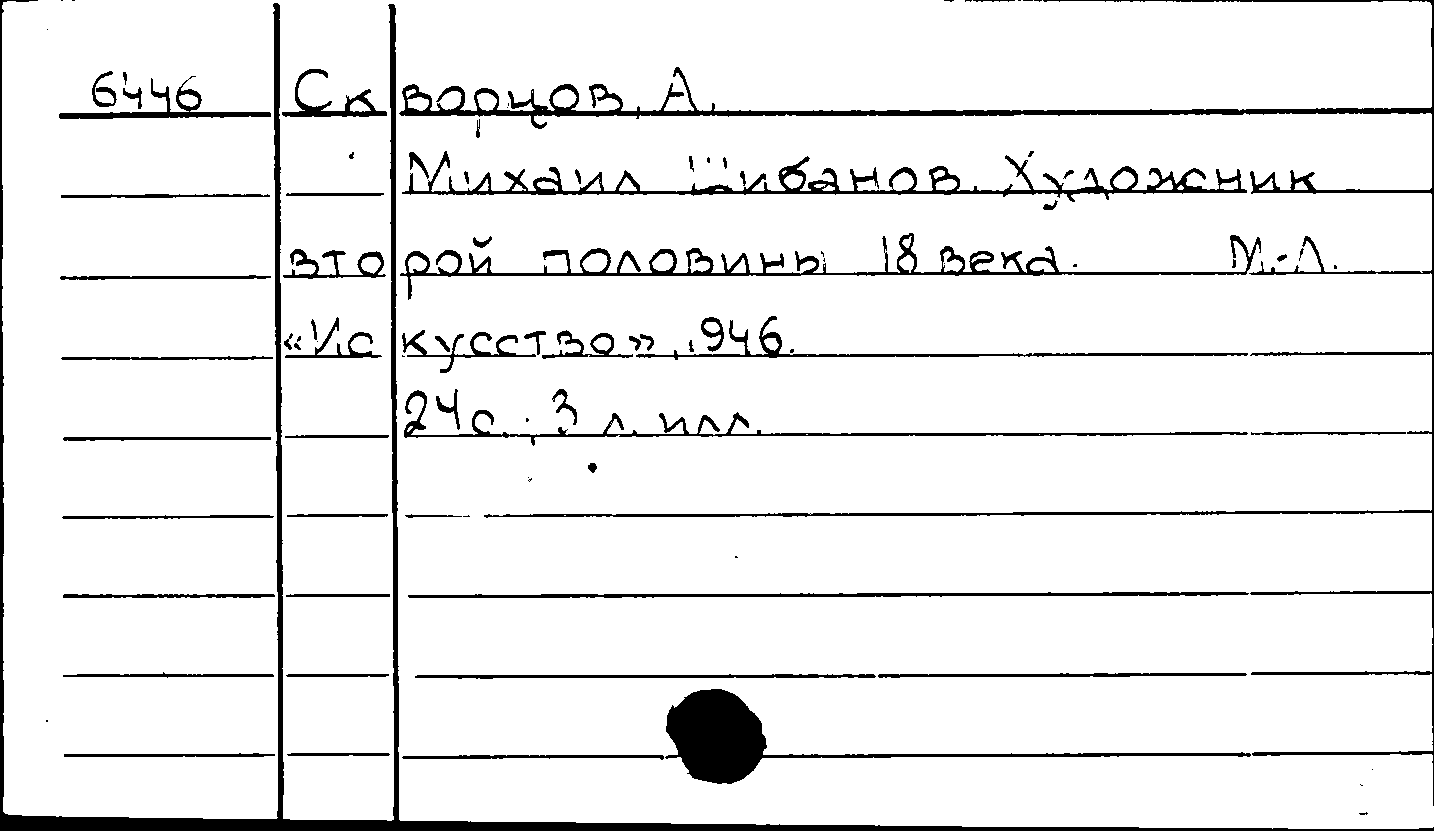 6446 Скворцов, А.
Михаил Шибанов. Художник
второй половины 18 века. М.-Л.
«Искусство», 1946.
24с.; 3 л. илл.